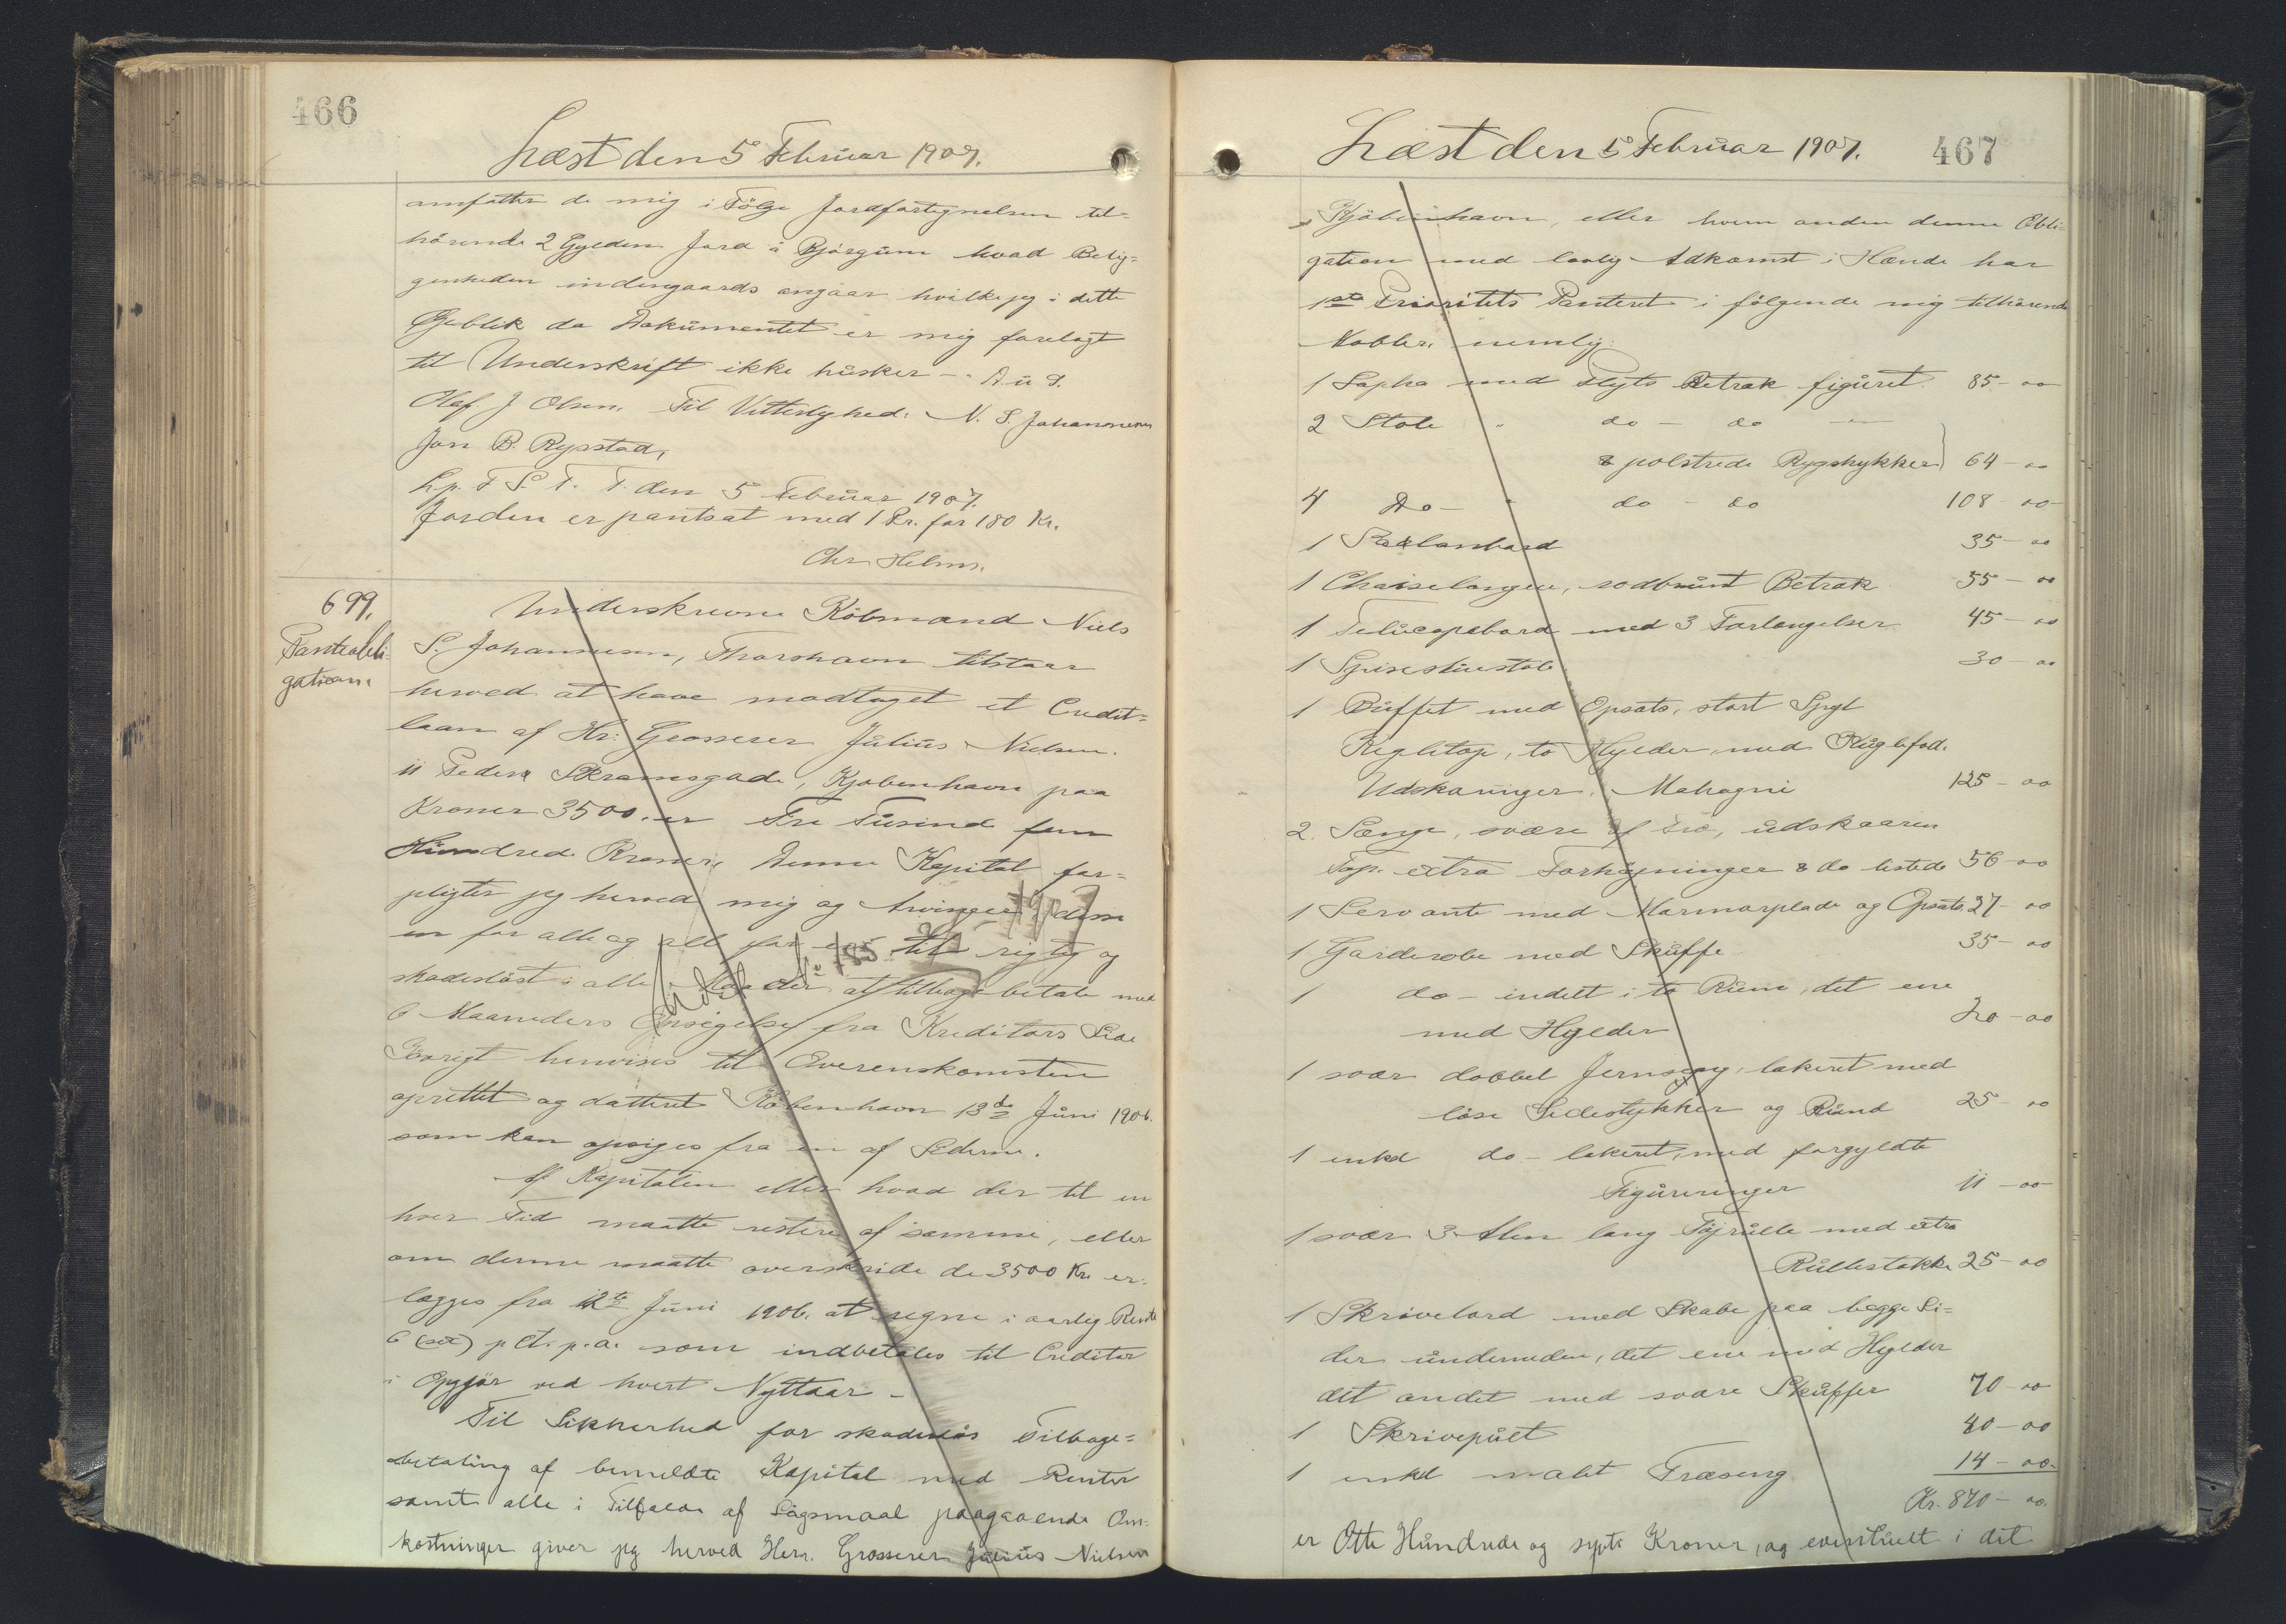 466
Læst den 5 Februar 1907.
omfatter de mig i Følge Jordfortegnelsen til=
hörende 2 Gylden Jord á Bjørgum hvad Belig=
genheden indengaards angaar hvilke jeg i dette
Øjeblik da Dokumentet er mig forelagt
til Underskrift ikke husker — A u S.
Olaf J Olsen. Til Vitterlighed: N. S. Johannesen
Jon B. Rysstad,
L.p. F S. T. T. den 5 Februar 1907.
Jorden er pantsat med 1 Pr. for 180 Kr.
Chr. Helms.
699.
Panteobli-
gation.
Underskrevne Köbmand Niels
S. Johannesen, Thorshavn tilstaar
herved at have modtaget et Credit=
laan af Hr. Grosserer Julius Nielsen.
11 Peder Skramsgade, Kjøbenhavn paa
Kroner 3500. er Tre Tusind fem
Hundrede Kroner. Denne Kapital for=
pligter jeg herved mig og Arvinger
en for alle og alle for en til rigtig og
skadeslöst i alle Maader at tilbagebetale med
6 Maaneders Opsigelse fra Kreditors Side
Iövrigt henvises til Overenskomsten
oprettet og datteret Köbenhavn 13de Juni 1906.
som kan opsiges fra en af Siderne.
Af Kapitalen eller hvad der til en
hver Tid maatte restere af samme, eller
om denne maatte overskride de 3500 Kr. er=
lægges fra 12te Juni 1906. at regne i aarlig Rente
6 (sex) p Ct. p.a. som indbetales til Creditor
i Opgjör ved hvert Nyttaar —
Til Sikkerhed for skadeslös Tilbage=
betaling af bemeldte Kapital med Renter
samt alle i Tilfælde af Sögsmaal paagaaende Om=
kostninger giver jeg herved Herr. Grosserer Julius Nielsen
Læst den 5 Februar 1907. 467
Kjöbenhavn, eller hvem anden denne Obli=
gation med lovlig Adkomst i Hænde har
1ste Prioritets Panteret i følgende mig tilhörende
Mobler. nemlig:
1 Sopha med Plyts Betræk figuret. 85 - 00
2 Stole " do - do —
& polstrede Rygstykker 64 - 00
4 Do - " do - do 108 - 00
1 Salonbord 35 - 00
1 Chaiselongue, rodbrunt Betræk 55 - 00
1 bord med 3 Forlængelser 45 - 00
1 Spisestuestole 30 - 00
1 Buffet med Opsats, stort Spejl
to Hylder, med Kuglefod.
Udskæringer. Mahogni 125 - 00
2. Senge, svære af Træ, udskaaren
Top. extra Forhøjninger & do listede 56 - 00
1 Servante med Marmorplade og Opsats 27 - 00
1 Garderobe med Skuffe 35 - 00
1 do - indelt i to Rum, det ene
med Hylder 20 - 00
1 svær dobbel Jernseng, lakeret med
löse Sidestykker og Bund 25 - 00
1 enkd do - lakeret, med forgyldte
Figureringer 11 - 00
1 svær 3 Alen lang Töjrulle med extra
Rullestokke 25 - 00
1 Skrivebord med Skabe paa begge Si=
der underneden, det ene med Hylder
det andet med svære Skuffer 70 - 00
1 Skrivepult 40 - 00
1 enkd malet Træseng 14 - 00.
Kr. 870 - 00.
er Otte Hundrede og sytti Kroner, og eventuelt i det